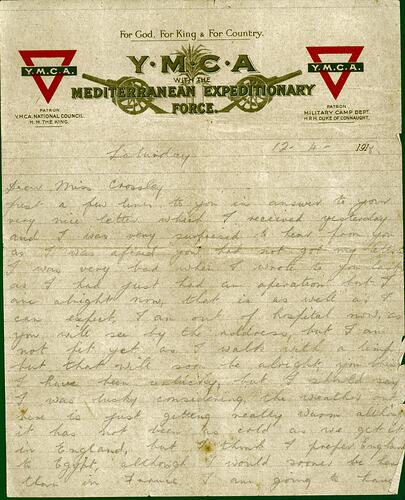 For God, For King & For Country.
Y.M.C.A.
Y.M.C.A.
Y·M·C·A
WITH THE
MEDITERRANEAN EXPEDITIONARY
FORCE.
PATRON
Y.M.C.A. NATIONAL COUNCIL
H.M. THE KING.
PATRON
MILITARY CAMP DEPT.
H.R.H. DUKE OF CONNAUGHT.
Saturday 12-4- 191
Dear Miss Crossley
Just a few lines to you in answer to your
very nice letter which I received yesterday
and I was very surprised to hear from you
as I was afraid you had not got my letter
I was very bad when I wrote to you last
as I had just had an operation but I
am alright now, that is as well as I
can expect, I am out of hospital now, as
you will see by the address, but I am
not fit yet as I walk with a limp
but that will soon be alright, you
I have been unlucky, but I should say
I was lucky considering, the weather out
here is just getting really warm
it has not been as cold as we get it
in England, but I think I prefer England
to Egypt, although I would sooner be here
than in France I am going to have